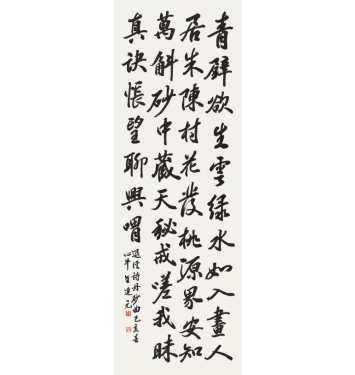 青壁欲生雲綠水如入畫人
居朱陳村花發桃源界安知
萬斛砂中藏天秘戒嗟我昧
真訣悵望聊興喟
詩丹砂曲己亥春